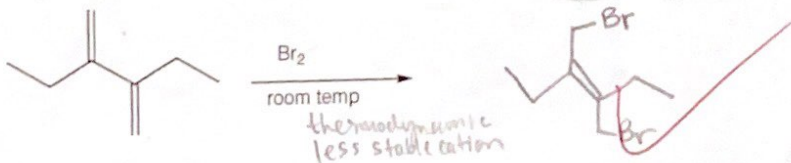 Br
Br₂
room temp
thermodynamic
less stable cation
Br